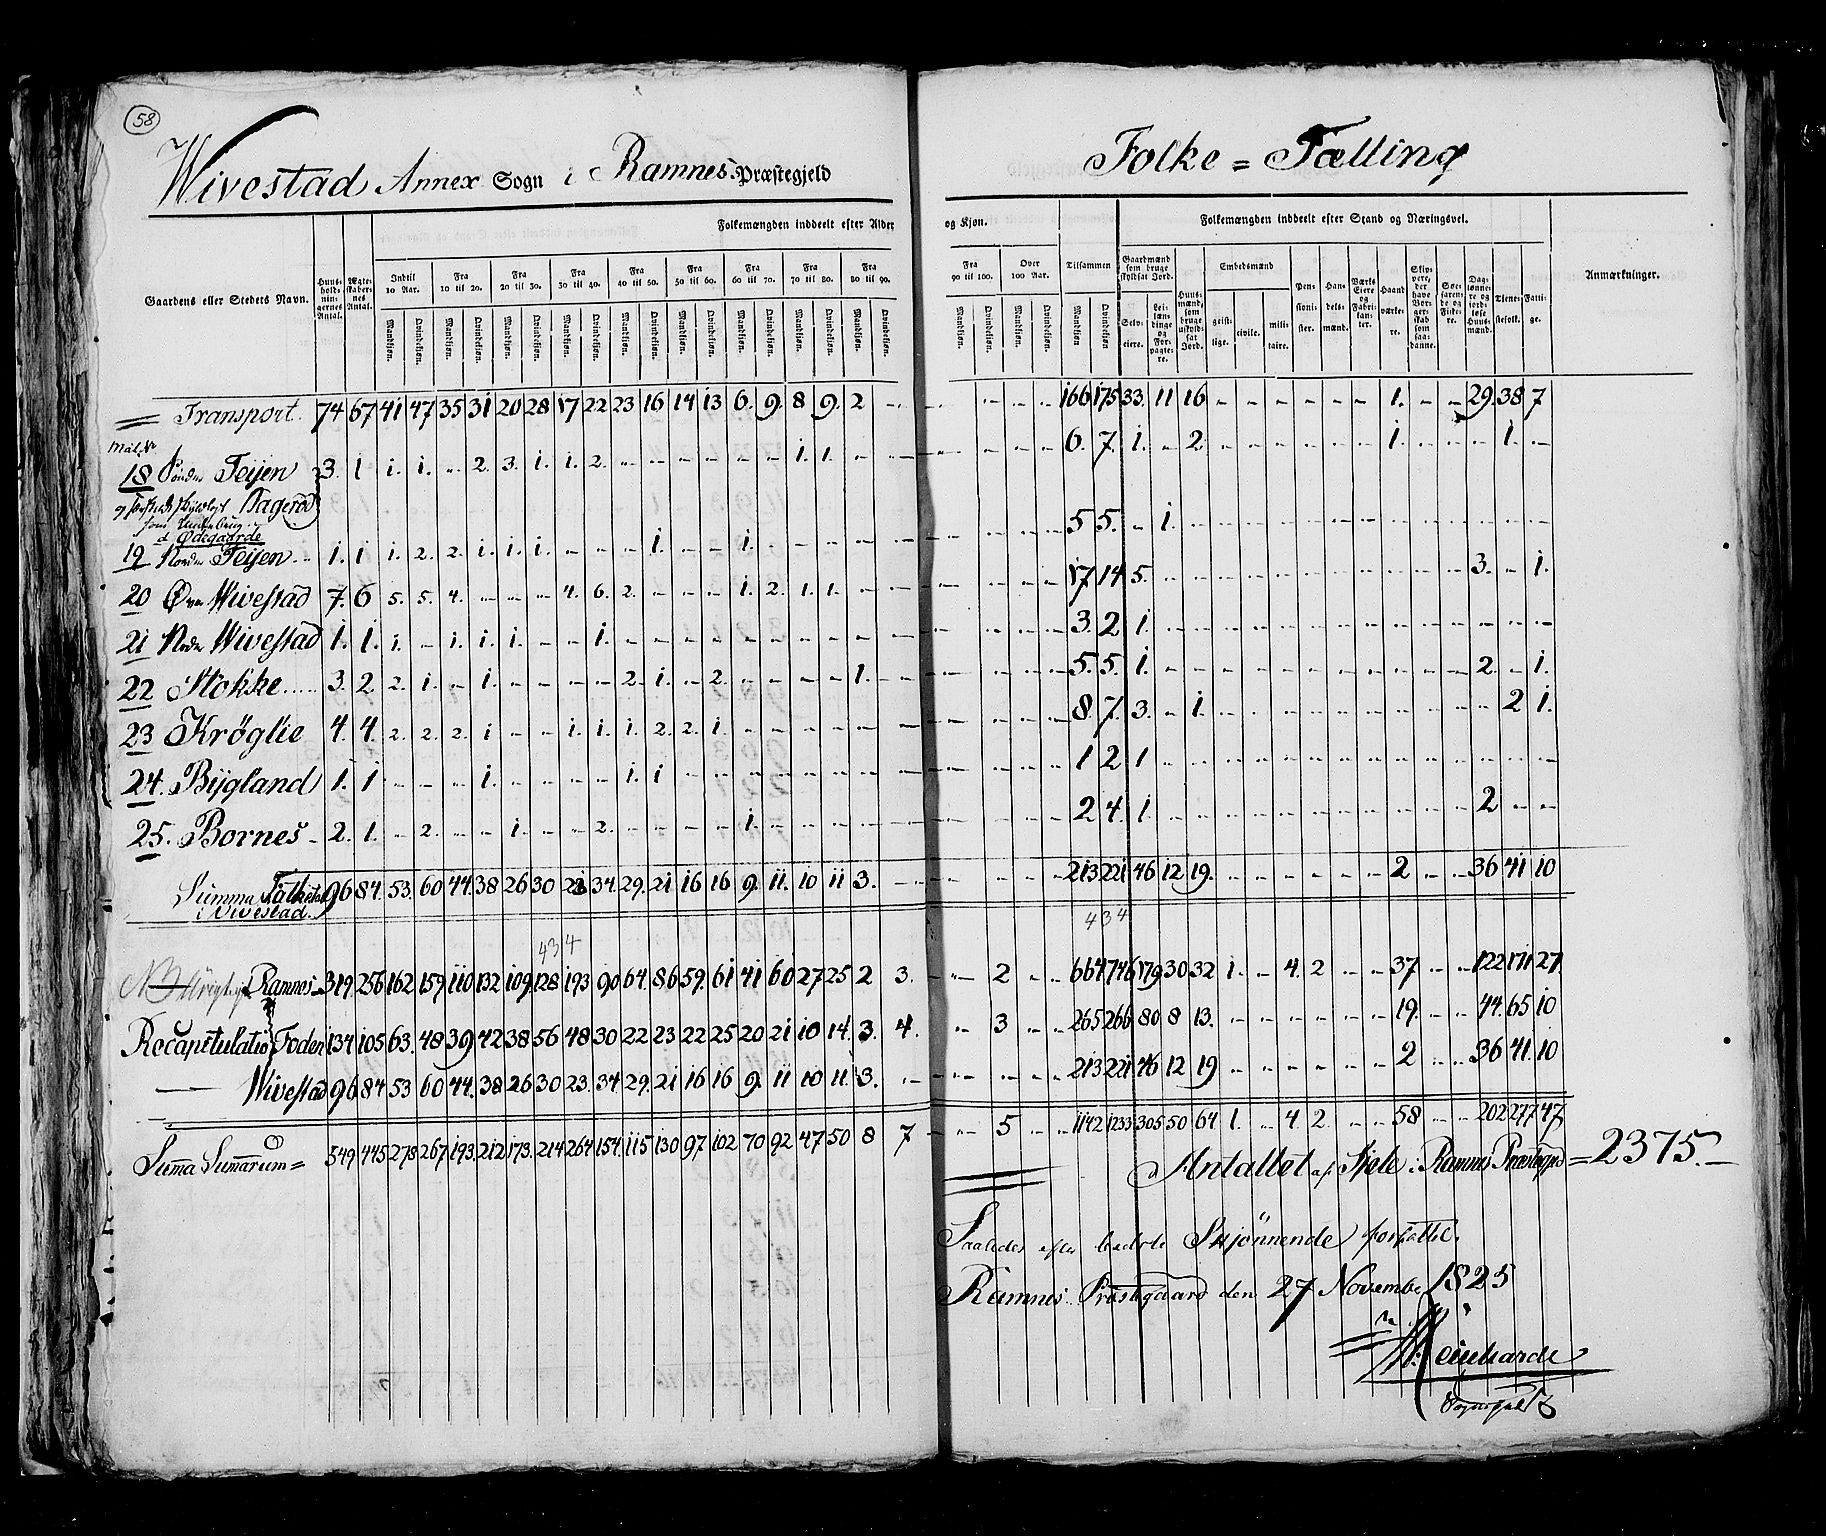 58
Wivestad Annex Sogn i Ramnes Præstegjeld
Folke = Tælling
Folkemængden inddeelt efter Alder og Kjøn.
Folkemængden inddeelt efter Stand og Næringsvei.
Gaardens eller Stedets Navn.
Huus-holdningernes Antal.
Ægteskabernes Antal.
Indtil 10 Aar.
Fra 10 til 20.
Fra 20 til 30.
Fra 30 til 40.
Fra 40 til 50.
Fra 50 til 60.
Fra 60 til 70.
Fra 70 til 80.
Fra 80 til 90.
Fra 90 til 100.
Over 100 Aar.
Tilsammen
Mandkjøn. Qvindekjøn.
Gaardmænd som bruge skyldsat Jord.
Selveiere.
Leilændinge og Forpagtere.
Huusmænd, som bruge uskyldsat Jord.
Embedsmænd
geistlige. civile. militaire.
Pensionister.
Handelsmænd.
Værks Eiere og Fabrikanter.
Haandværkere.
Skippere, der have Borgerskab som saadanne.
Søefarende og Fiskere.
Daglønnere og jordløse Huusmænd.
Tjenestefolk.
Fattige.
Anmærkninger.
Transport. 74 67 41 47 35 31 20 28 17 22 23 16 14 13 6. 9. 8 9. 2 166 175 33. 11 16 1. 29. 38 7
Mat. Nr
18 Søndre Teijen 3. 1 1. 1. 2. 3. 1. 1. 2. 1. 1. 6. 7. 1. 2. 1. 1.
Bagerød
Ødegaarde
19 Nordre Teijen 1. 1 1. 2. 2. 1. 1. 1. 1. 1. 5 5. 1.
20 Øvre Wivestad 7. 6 5. 5. 4. 4. 6. 2. 1. 2. 1. 1. 17 14 5. 3. 1.
21 Nedre Wivestad 1. 1. 1. 1. 1. 1. 1. 3. 2 1.
22 Stokke 3. 2 2. 1. 1. 2. 1. 2. 1. 5. 5. 1. 2. 1.
23 Krøglie 4. 4. 2. 2. 2. 1 1. 1. 1. 2. 2. 1. 8. 7. 3. 1. 2 1.
24. Bijgland 1. 1 1. 1. 1 1 2 1
25. Bornes 2. 1. 2. 1. 2. 1. 2 4. 1. 2
Summa Folketal i Wivestad. 96 84. 53. 60 44. 38 26 30 23 34. 29. 21 16 16 9. 11. 10 11 3. 213 221 46 12 19. 2 36 41 10
434
434
NB Ramnes 319. 256 162 159 110 132 109. 128 193 90 64. 86 59. 61 41 60 27 25 2 3. 2 664 746 179 30 32 1. 4. 2 37 122 171 27
Recapitulatio Foden 134 105 63. 48 39 42 38 56 48 30 22 23 22 25 20 21 10 14. 3. 4. 3 265 266 80 8 13. 19. 44. 65 10
Wivestad 96 84 53 60 44. 38 26 30 23. 34. 29. 21 16 16 9. 11 10 11. 3. 213 221 46 12 19 2 36 41. 10
Summa Summarum = 549 445 278 267 193. 212 173. 214 264 154. 115 130 97 102 70 92 47 50 8 7 5 1142 1233 305 50 64 1. 4 2 58 202 277 47
Antallet af Sjele i Ramnes Præstegjeld = 2375.
Saaledes efter bedste Skjønnende forfattet.
Ramnes Præstegaard den 27 November 1825
Meinhardt